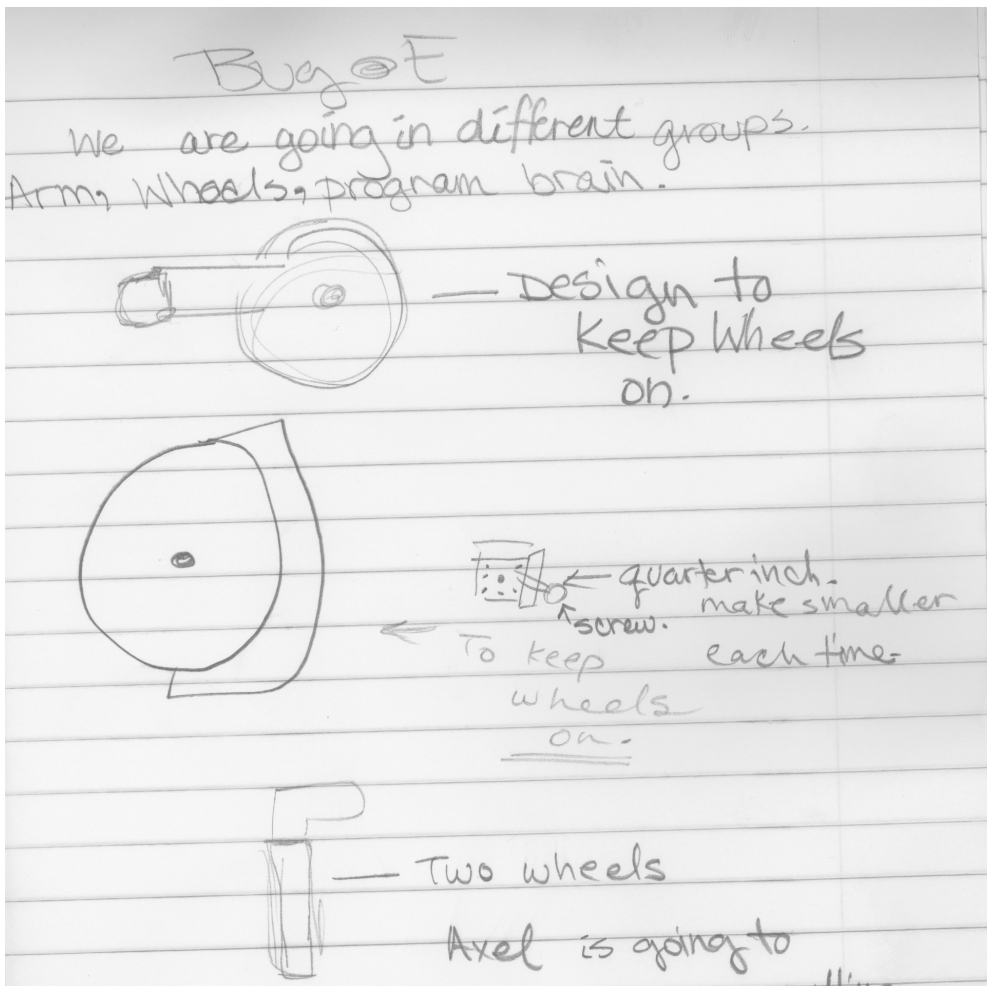 Bug-E
We are going in different groups.
Arm, Wheels, program brain.
Design to
Keep Wheels
on.
quarter inch.
make smaller
each time.
screw.
To keep
wheels
on.
Two wheels
Axel is going to